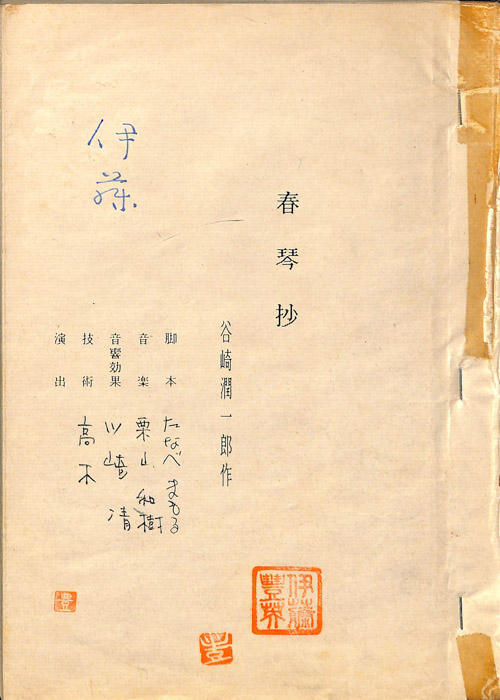 春琴抄
谷崎潤一郎作
脚本 たなべまもる
音楽 栗山和樹
音響効果 川崎清
技術 高木
演出
伊藤
伊藤豐英
豊